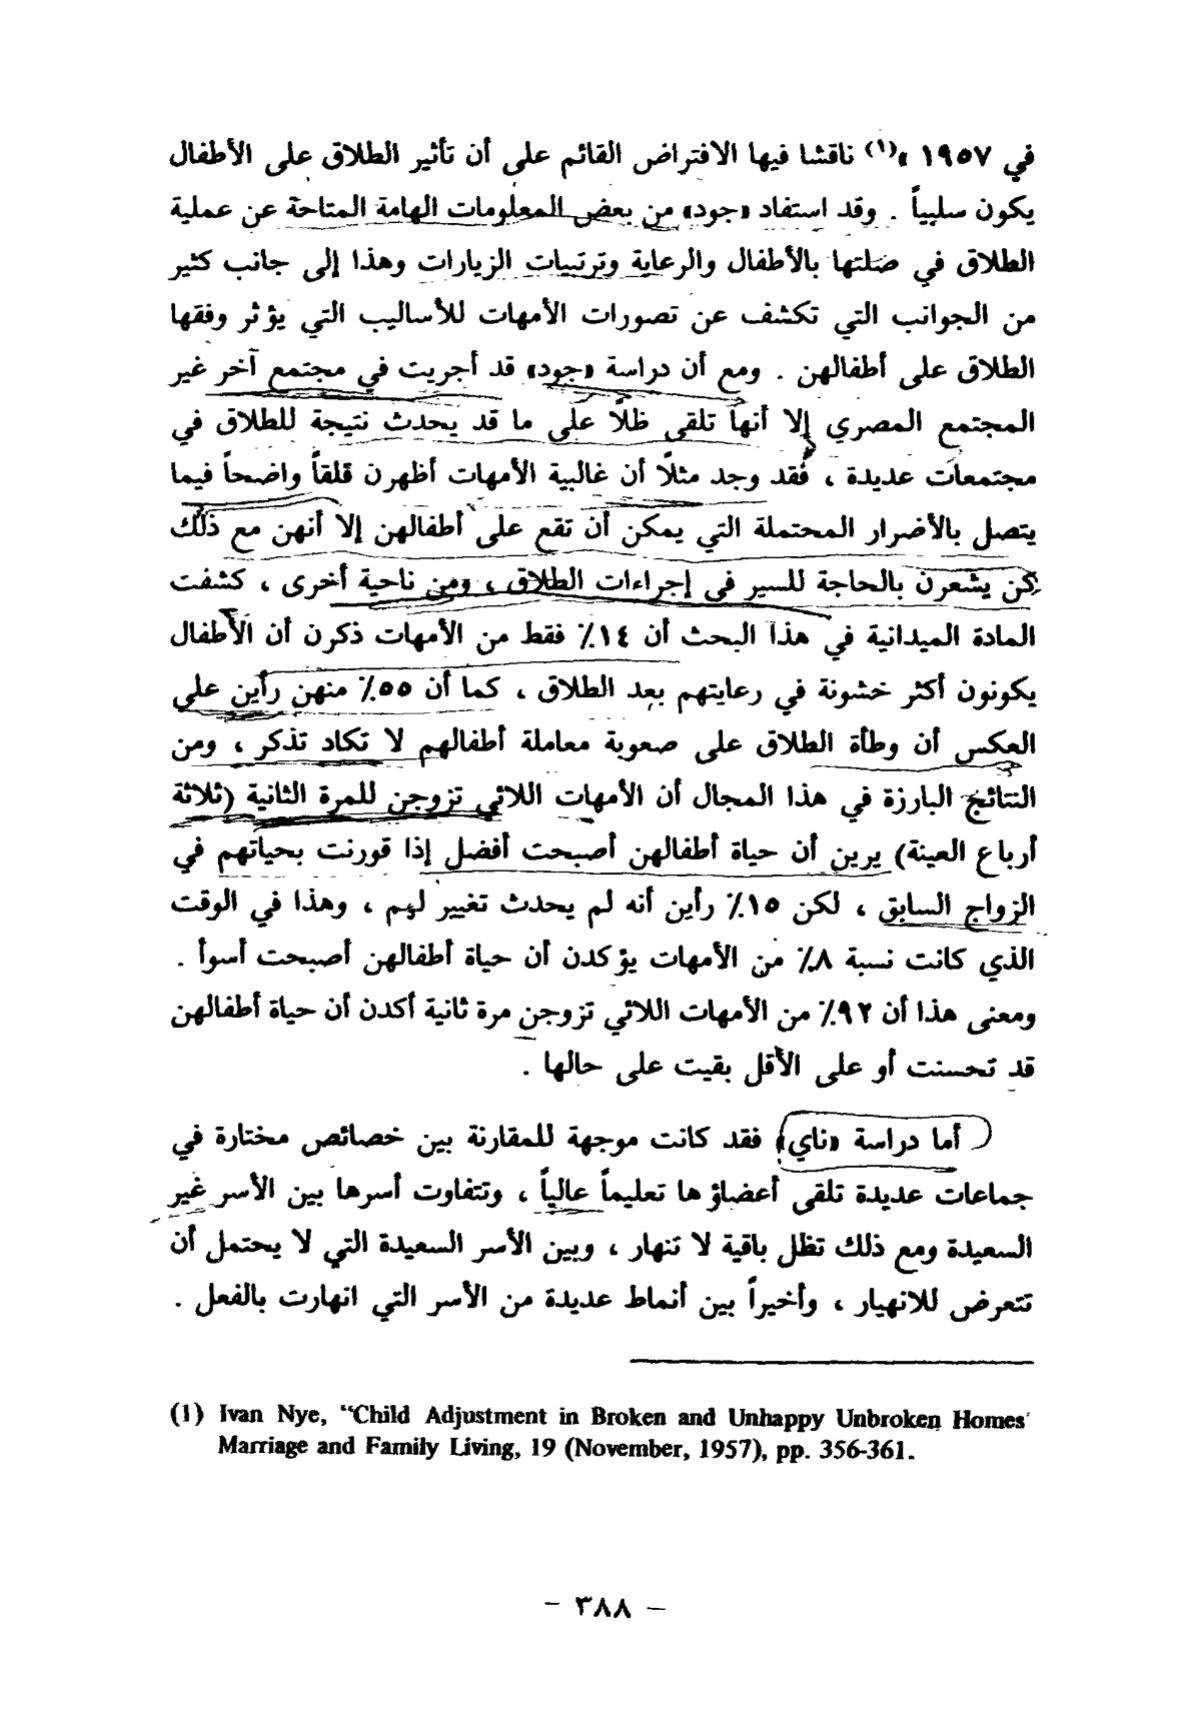 في ١٩٥٧ »(١) ناقشا فيها الافتراض القائم على أن تأثير الطلاق على الأطفال
يكون سلبياً . وقد استفاد «جود» من بعض المعلومات الهامة المتاحة عن عملية
الطلاق في صلتها بالأطفال والرعاية وترتيبات الزيارات وهذا إلى جانب كثير
من الجوانب التي تكشف عن تصورات الأمهات للأساليب التي يؤثر وفقها
الطلاق على أطفالهن . ومع أن دراسة «جود» قد أجريت في مجتمع آخر غير
المجتمع المصري إلا أنها تلقى ظلًا على ما قد يحدث نتيجة للطلاق في
مجتمعات عديدة ، فقد وجد مثلًا أن غالبية الأمهات أظهرن قلقاً واضحاً فيما
يتصل بالأضرار المحتملة التي يمكن أن تقع على أطفالهن إلا أنهن مع ذلك
كن يشعرن بالحاجة للسير في إجراءات الطلاق ، ومن ناحية أخرى ، كشفت
المادة الميدانية في هذا البحث أن ١٤٪ فقط من الأمهات ذكرن أن الأطفال
يكونون أكثر خشونة في رعايتهم بعد الطلاق ، كما أن ٥٥٪ منهن رأين على
العكس أن وطأة الطلاق على صعوبة معاملة أطفالهم لا تكاد تذكر ، ومن
النتائج البارزة في هذا المجال أن الأمهات اللائي تزوجن للمرة الثانية (ثلاثة
أرباع العينة) يرين أن حياة أطفالهن أصبحت أفضل إذا قورنت بحياتهم في
الزواج السابق ، لكن ١٥٪ رأين أنه لم يحدث تغيير لهم ، وهذا في الوقت
الذي كانت نسبة ٨٪ من الأمهات يؤكدن أن حياة أطفالهن أصبحت أسوأ .
ومعنى هذا أن ٩٢٪ من الأمهات اللائي تزوجن مرة ثانية أكدن أن حياة أطفالهن
قد تحسنت أو على الأقل بقيت على حالها .
أما دراسة «ناي» فقد كانت موجهة للمقارنة بين خصائص مختارة في
جماعات عديدة تلقى أعضاؤها تعليماً عالياً ، وتتفاوت أسرها بين الأسر غير
السعيدة ومع ذلك تظل باقية لا تنهار ، وبين الأسر السعيدة التي لا يحتمل أن
تتعرض للانهيار ، وأخيراً بين أنماط عديدة من الأسر التي انهارت بالفعل .
(1) Ivan Nye, “Child Adjustment in Broken and Unhappy Unbroken Homes'
Marriage and Family Living, 19 (November, 1957), pp. 356-361.
- ٣٨٨ -